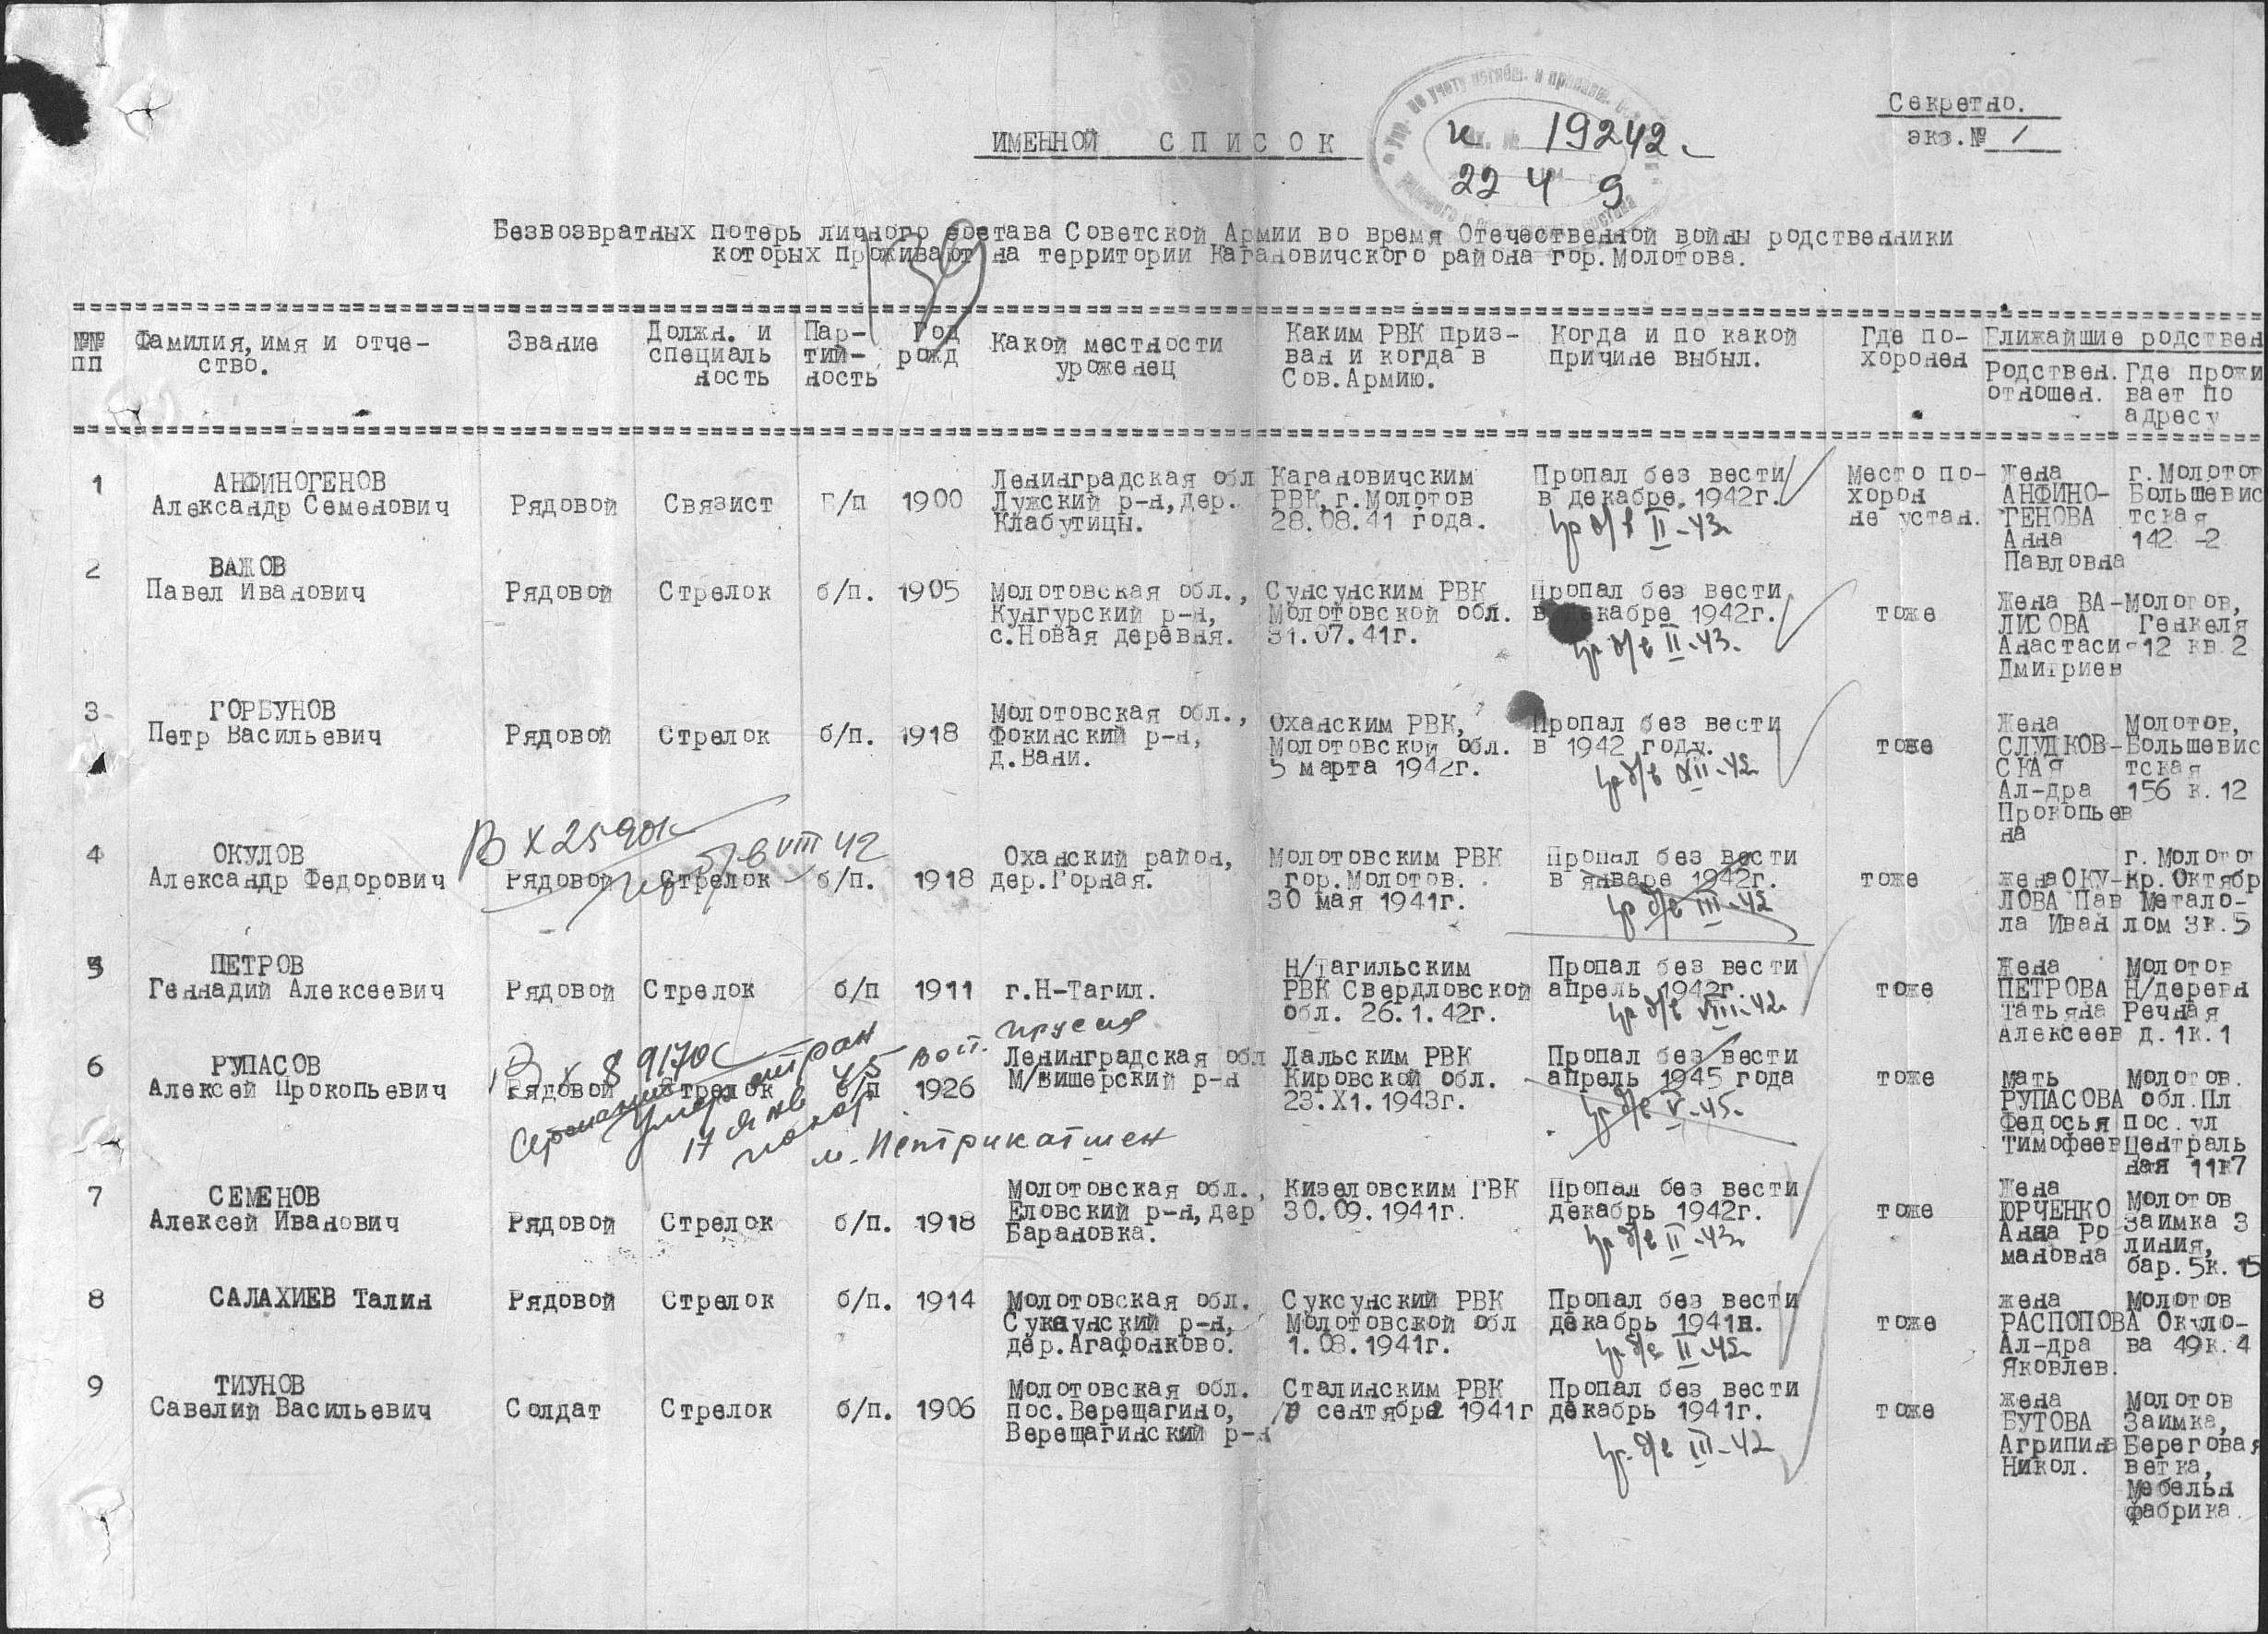 Секретно.
экз.№ 1
ИМЕННОЙ СПИСОК
вх. №
к 19242
22 4 9
Безвозвратных потерь личного состава Советской Армии во время Отечественной войны родственники
которых проживают на территории Кагановичского района гор.Молотова.
139
№№ пп
Фамилия,имя и отче-
ство.
Звание
Должн. и
специаль
ность
Пар-
тий-
ность
Год
рожд
Какой местности
уроженец
Каким РВК приз-
ван и когда в
Сов.Армию.
Когда и по какой
причине выбыл.
Где по-
хоронен
Ближайшие родствен
Родствен.
отношен.
Где прожи
вает по
адресу
1
АНФИНОГЕНОВ
Александр Семенович
Рядовой
Связист
Б/п
1900
Ленинградская обл
Лужский р-н,дер.
Клабутицы.
Кагановичским
РВК,г.Молотов
28.08.41 года.
Пропал без вести
в декабре 1942г.
б/в II-43
Место по-
хорон
не устан.
Жена
АНФИНО-
ГЕНОВА
Анна
Павловна
г.Молотов
Большевис
тская
142 -2
2
ВАЖОВ
Павел Иванович
Рядовой
Стрелок
б/п.
1905
Молотовская обл.,
Кунгурский р-н,
с.Новая деревня.
Сунсунским РВК
Молотовской обл.
31.07.41г.
Пропал без вести
в декабре 1942г.
б/в II-43.
тоже
Жена ВА-
ЛИСОВА
Анастаси-
Дмитриев
Молотов,
Генкеля
12 кв.2
3
ГОРБУНОВ
Петр Васильевич
Рядовой
Стрелок
б/п.
1918
Молотовская обл.,
Фокинский р-н,
д.Вани.
Оханским РВК,
Молотовской обл.
5 марта 1942г.
Пропал без вести
в 1942 году.
б/в XII-42
тоже
Жена
СЛУДКОВ-
СКАЯ
Ал-дра
Прокопьев
на
Молотов,
Большевис
тская
156 к.12
4
ОКУЛОВ
Александр Федорович
В Х 2590
б/в VIII 42
Рядовой
Стрелок
б/п.
1918
Оханский район,
дер.Горная.
Молотовским РВК
гор.Молотов.
30 мая 1941г.
Пропал без вести
в январе 1942г.
б/в III-42
тоже
женаОКУ-
ЛОВА Пав
ла Иван
г.Молотов
Кр.Октябр
Метало-
лом 3к.5
5
ПЕТРОВ
Геннадий Алексеевич
Рядовой
Стрелок
б/п
1911
г.Н-Тагил.
Н/Тагильским
РВК Свердловской
обл. 26.1.42г.
Пропал без вести
апрель 1942г.
б/в VIII-42
тоже
Жена
ПЕТРОВА
Татьяна
Алексеев
Молотов
Н/деревн
Речная
д.1к.1
6
РУПАСОВ
Алексей Прокопьевич
В Х 89170с
Рядовой
Стрелок
б/п
1926
17 янв 45 вост. пруссия
похор
м. Петрикатшен
Ленинградская обл
М/вишерский р-н
Лальским РВК
Кировской обл.
23.Х1.1943г.
Пропал без вести
апрель 1945 года
б/в V-45.
тоже
мать
РУПАСОВА
Федосья
Тимофеев
Молотов.
обл.Пл
пос.ул
Централь
ная 11к7
7
СЕМЕНОВ
Алексей Иванович
Рядовой
Стрелок
б/п.
1918
Молотовская обл.,
Еловский р-н,дер
Барановка.
Кизеловским ГВК
30.09.1941г.
Пропал без вести
декабрь 1942г.
б/в II-43
тоже
Жена
ЮРЧЕНКО
Анна Ро
мановна
Молотов
Заимка 3
линия,
бар.5к.15
8
САЛАХИЕВ Талин
Рядовой
Стрелок
б/п.
1914
Молотовская обл.
Сукмунский р-н,
дер.Агафонково.
Суксунский РВК
Молотовской обл
1.08.1941г.
Пропал без вести
декабрь 1941г.
б/в II-42
тоже
жена
РАСПОПОВА
Ал-дра
Яковлев.
Молотов
Окуло-
ва 49к.4
9
ТИУНОВ
Савелий Васильевич
Солдат
Стрелок
б/п.
1906
Молотовская обл.
пос.Верещагино,
Верещагинский р-н
Сталинским РВК
в сентябре 1941г
Пропал без вести
декабрь 1941г.
б/в III-42
тоже
жена
БУТОВА
Агрипина
Никол.
Молотов
Заимка,
Береговая
ветка,
Мебельн
фабрика.